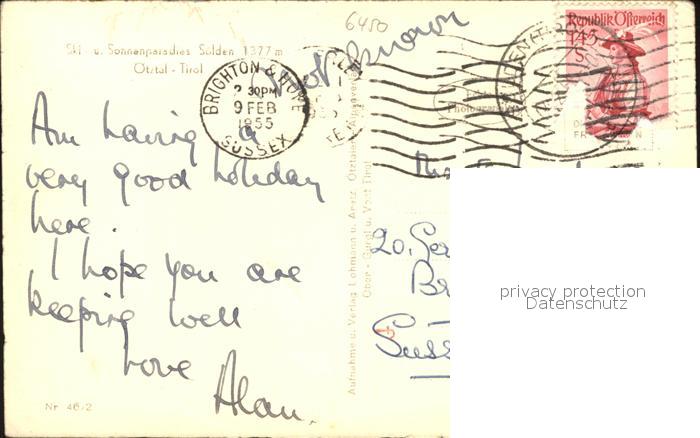 6450
not known
Ski- u. Sonnenparadies Sölden 1377 m
Ötztal - Tirol
BRIGHTON & HOVE
2 30PM
9 FEB
1955
SUSSEX
Republik Österreich
1.45
S
Am having a
very good holiday
here.
I hope you are
keeping well
Love
Alan.
Nr. 46/2
Aufnahme u. Verlag Lohmann u. Aretz Ötztaler
Ober-Gurgl u. Vent Tirol
20,
Suss
privacy protection
Datenschutz